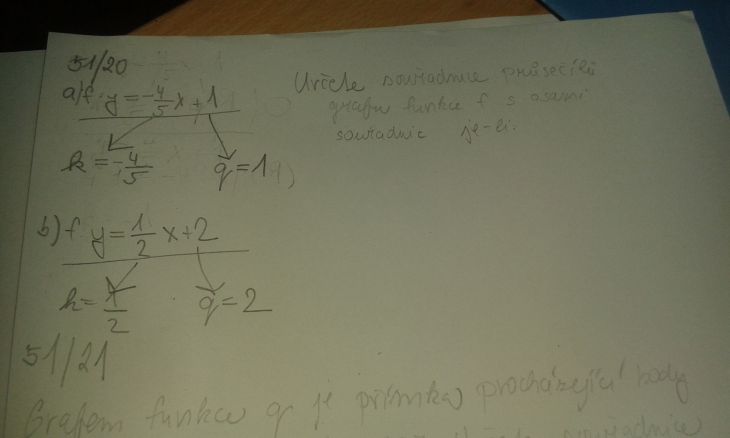 51/20
a) f y = -4/5 x + 1
k = -4/5 q = 1
Určete souřadnice průsečíků
grafu funkce f s osami
souřadnic je-li:
b) f y = 1/2 x + 2
k = 1/2 q = 2
51/21
Grafem funkce g je přímka procházející body
souřadnice